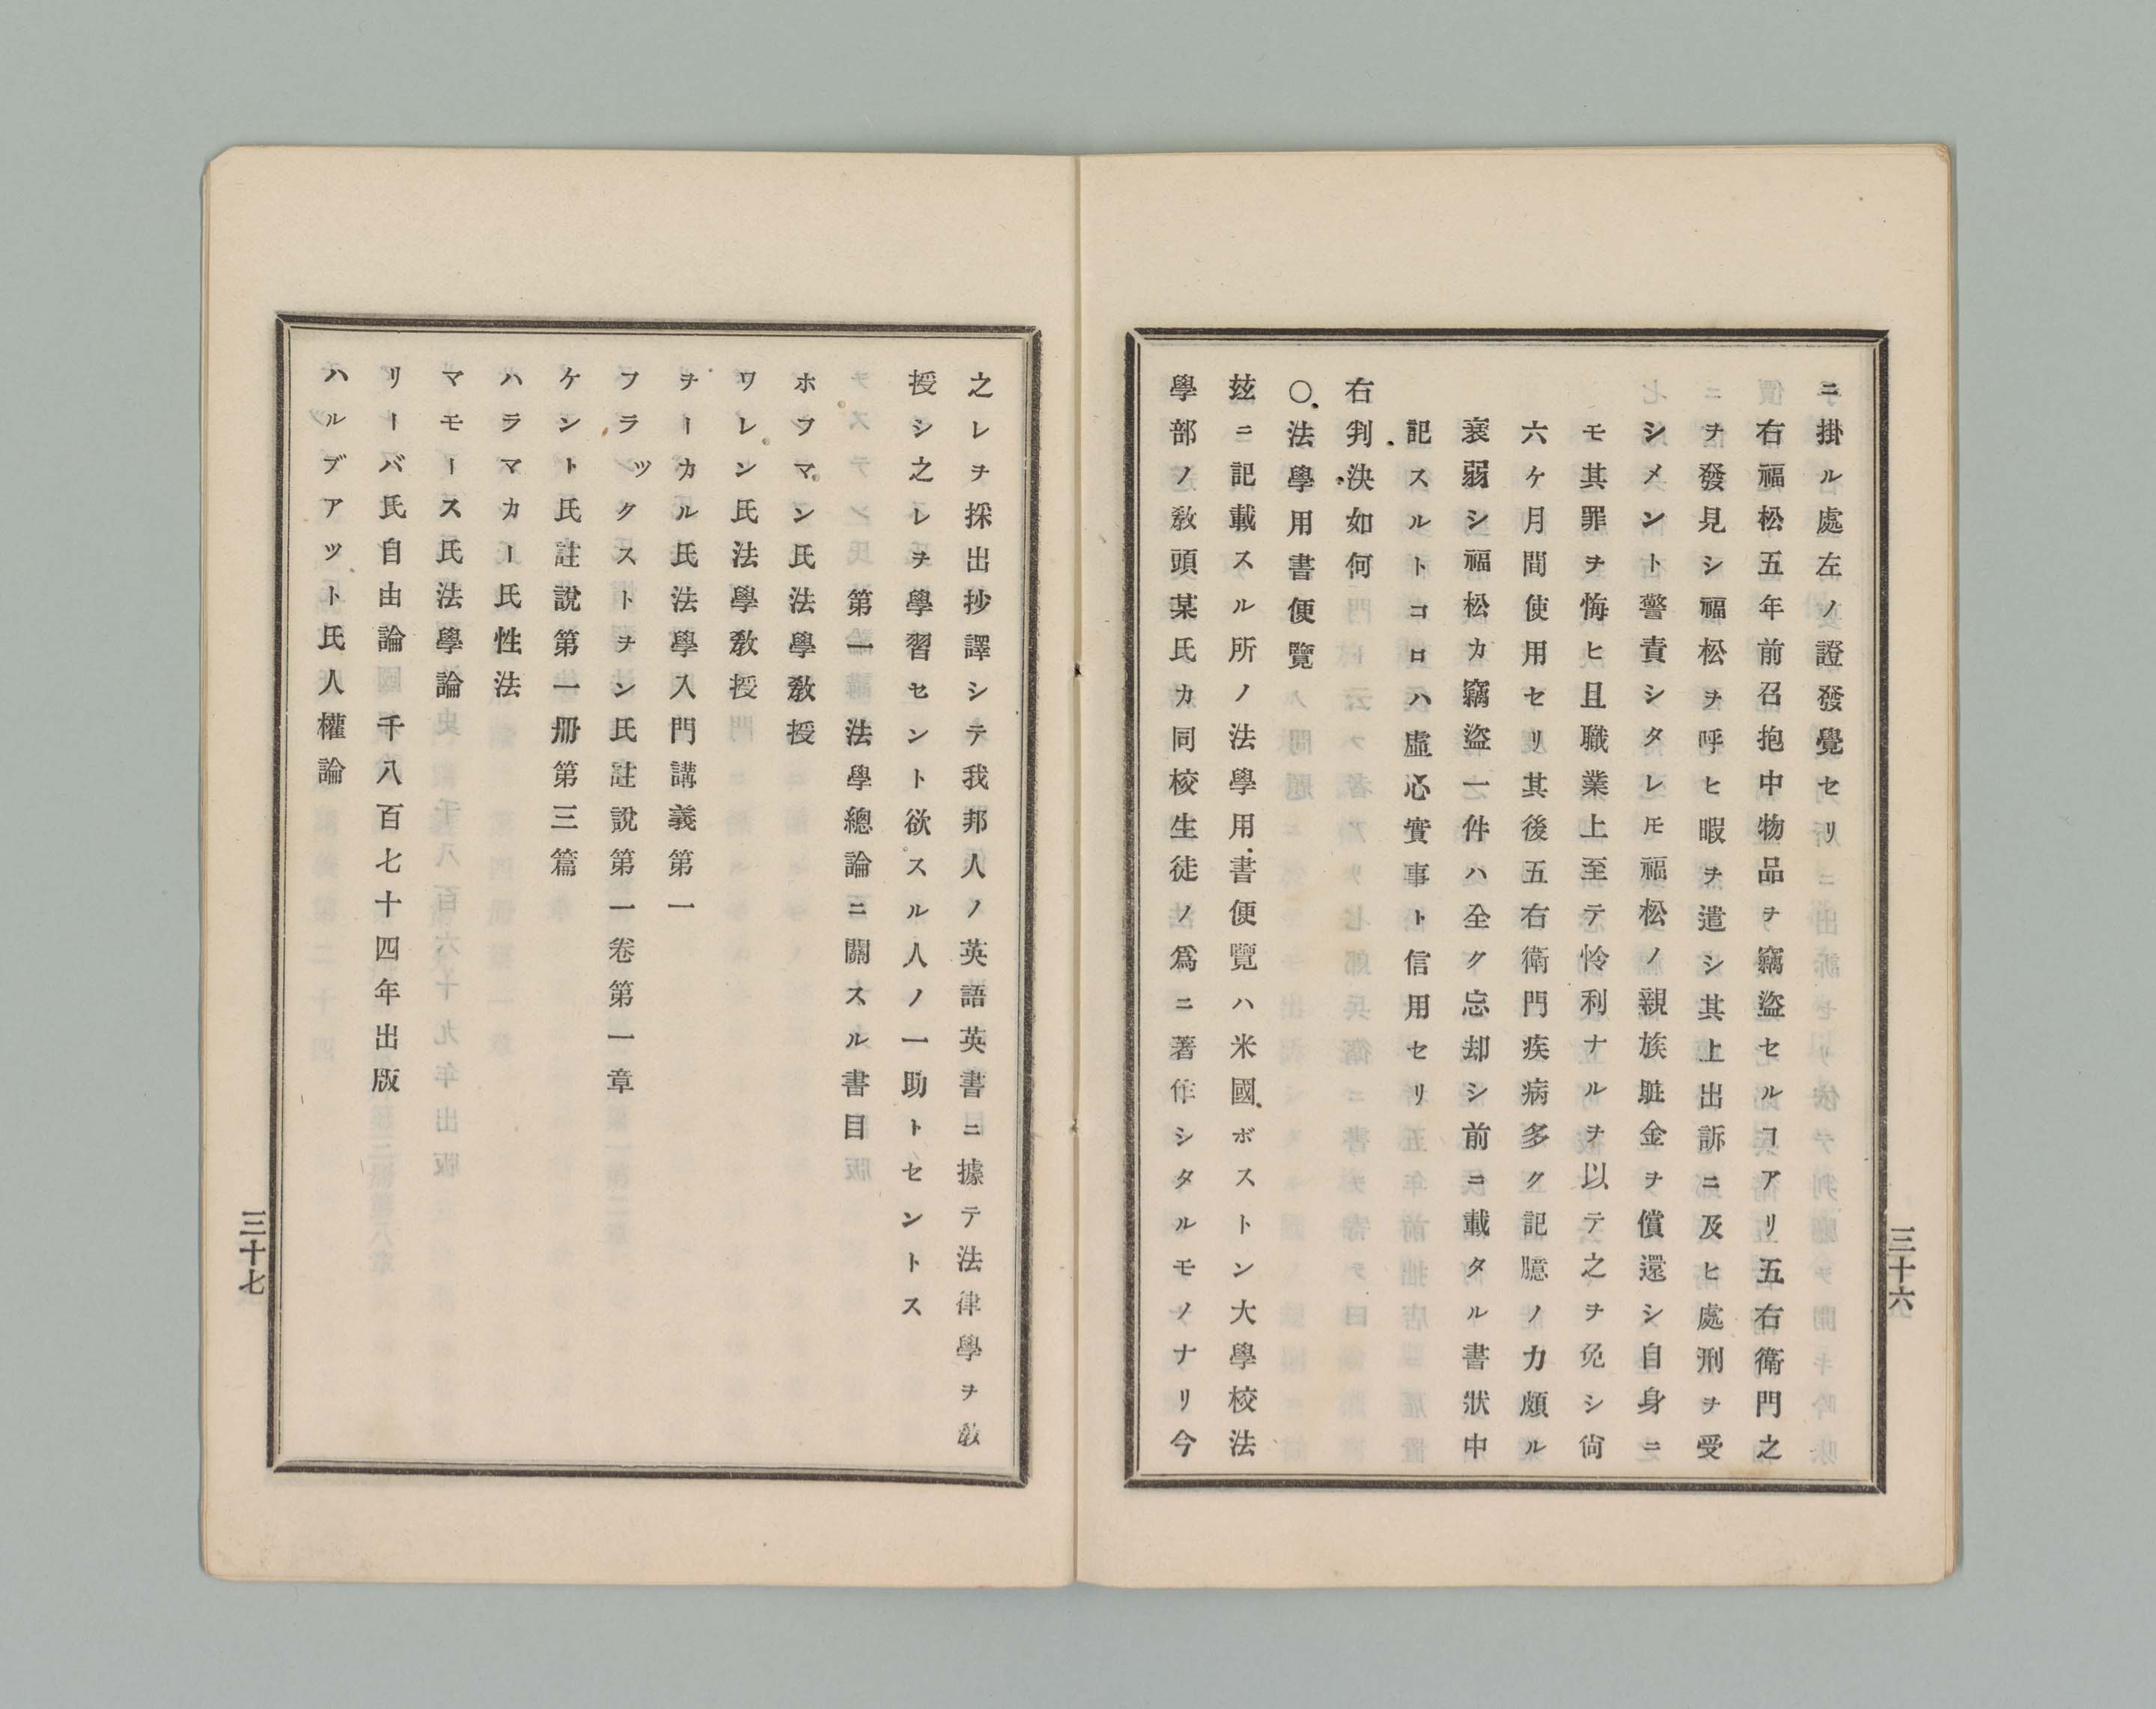 ニ掛ル處左ノ證發覺セリ
右福松五年前召抱中物品ヲ竊盜セルヿアリ五右衛門之
ヲ發見シ福松ヲ呼ヒ暇ヲ遣シ其上出訴ニ及ヒ處刑ヲ受
シメントト警責シタレ𪜈福松ノ親族賍金ヲ償還シ自身ニ
モ其罪ヲ悔ヒ且職業上至テ怜利ナルヲ以テ之ヲ免シ尙
六ケ月間使用セリ其後五右衛門疾病多ク記臆ノ力頗ル
衰弱シ福松カ竊盜一件ハ全ク忘却シ前ニ載タル書狀中
記スルトコロハ虛心實事ト信用セリ
右判決如何
○法學用書便覽
玆ニ記載スル所ノ法學用書便覽ハ米國ボストン大學校法
學部ノ敎頭某氏カ同校生徒ノ爲ニ著作シタルモノナリ今
三十六
之レヲ採出抄譯シテ我邦人ノ英語英書ニ據テ法律學ヲ敎
授シ之レヲ學習セント欲スル人ノ一助トセントス
第一　法學總論ニ關スル書目
ホフマン氏法學敎授
ワレン氏法學敎授
チーカル氏法學入門講義第一
フラックストヲン氏註說第一卷第一章
ケント氏註說第一册第三篇
ハラマカー氏性法
マモース氏法學論
リーバ氏自由論　千八百七十四年出版
ハルブアット氏人權論
三十七